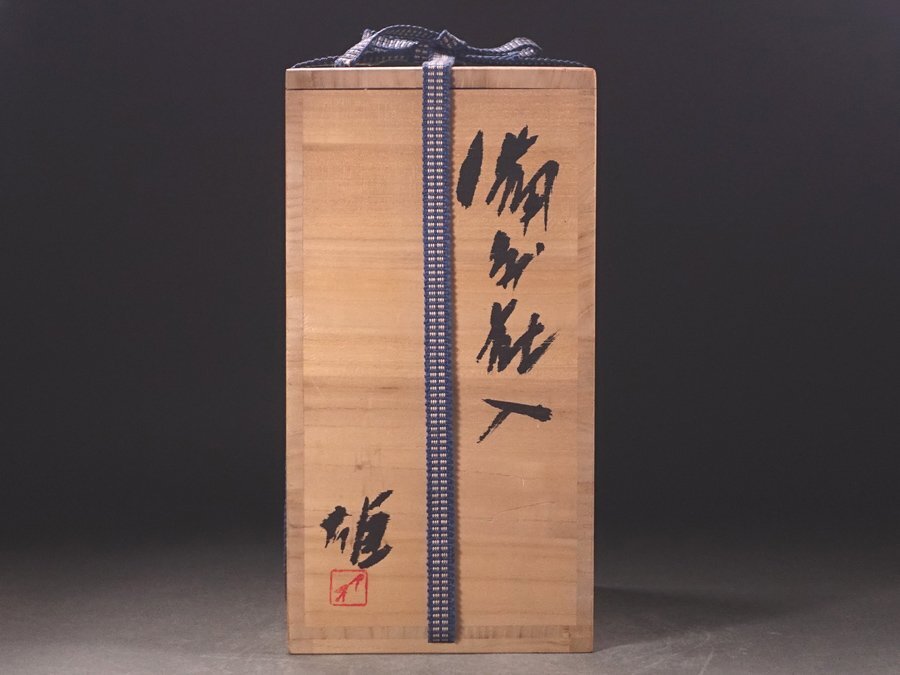 備前花入
雄